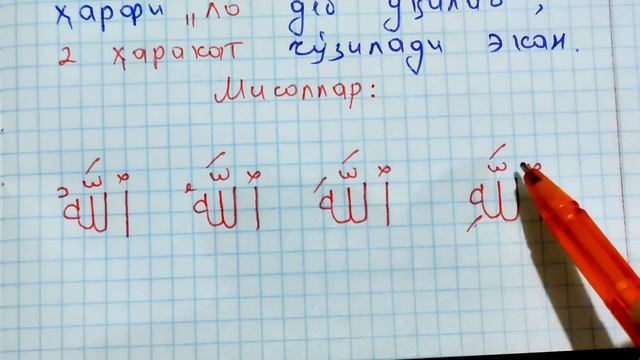 ҳарфи „ло део ўқилиб,
2 ҳаракат чўзилади экан.
Мисоллар:
اللّٰهُ اللّٰهْ اللّٰهَ اللّٰهِ